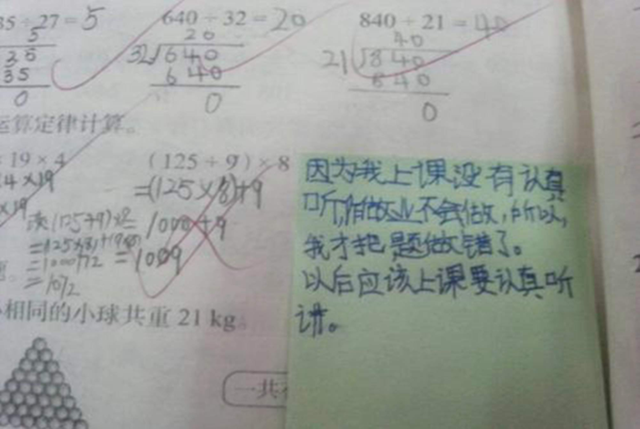 35÷27=5
640÷32=20
840÷21=40
5
20
40
32 640
21 840
35
640
840
0
0
0
运算定律计算。
19×4
(125+9)×8
4×19
=(125×8)+9
×19
=1000+9
=1009
=1000+72
=1072
相同的小球共重21 kg
一共
因为我上课没有认真
听,做作业不会做,所以,
我才把题做错了。
以后应该上课要认真听
讲。